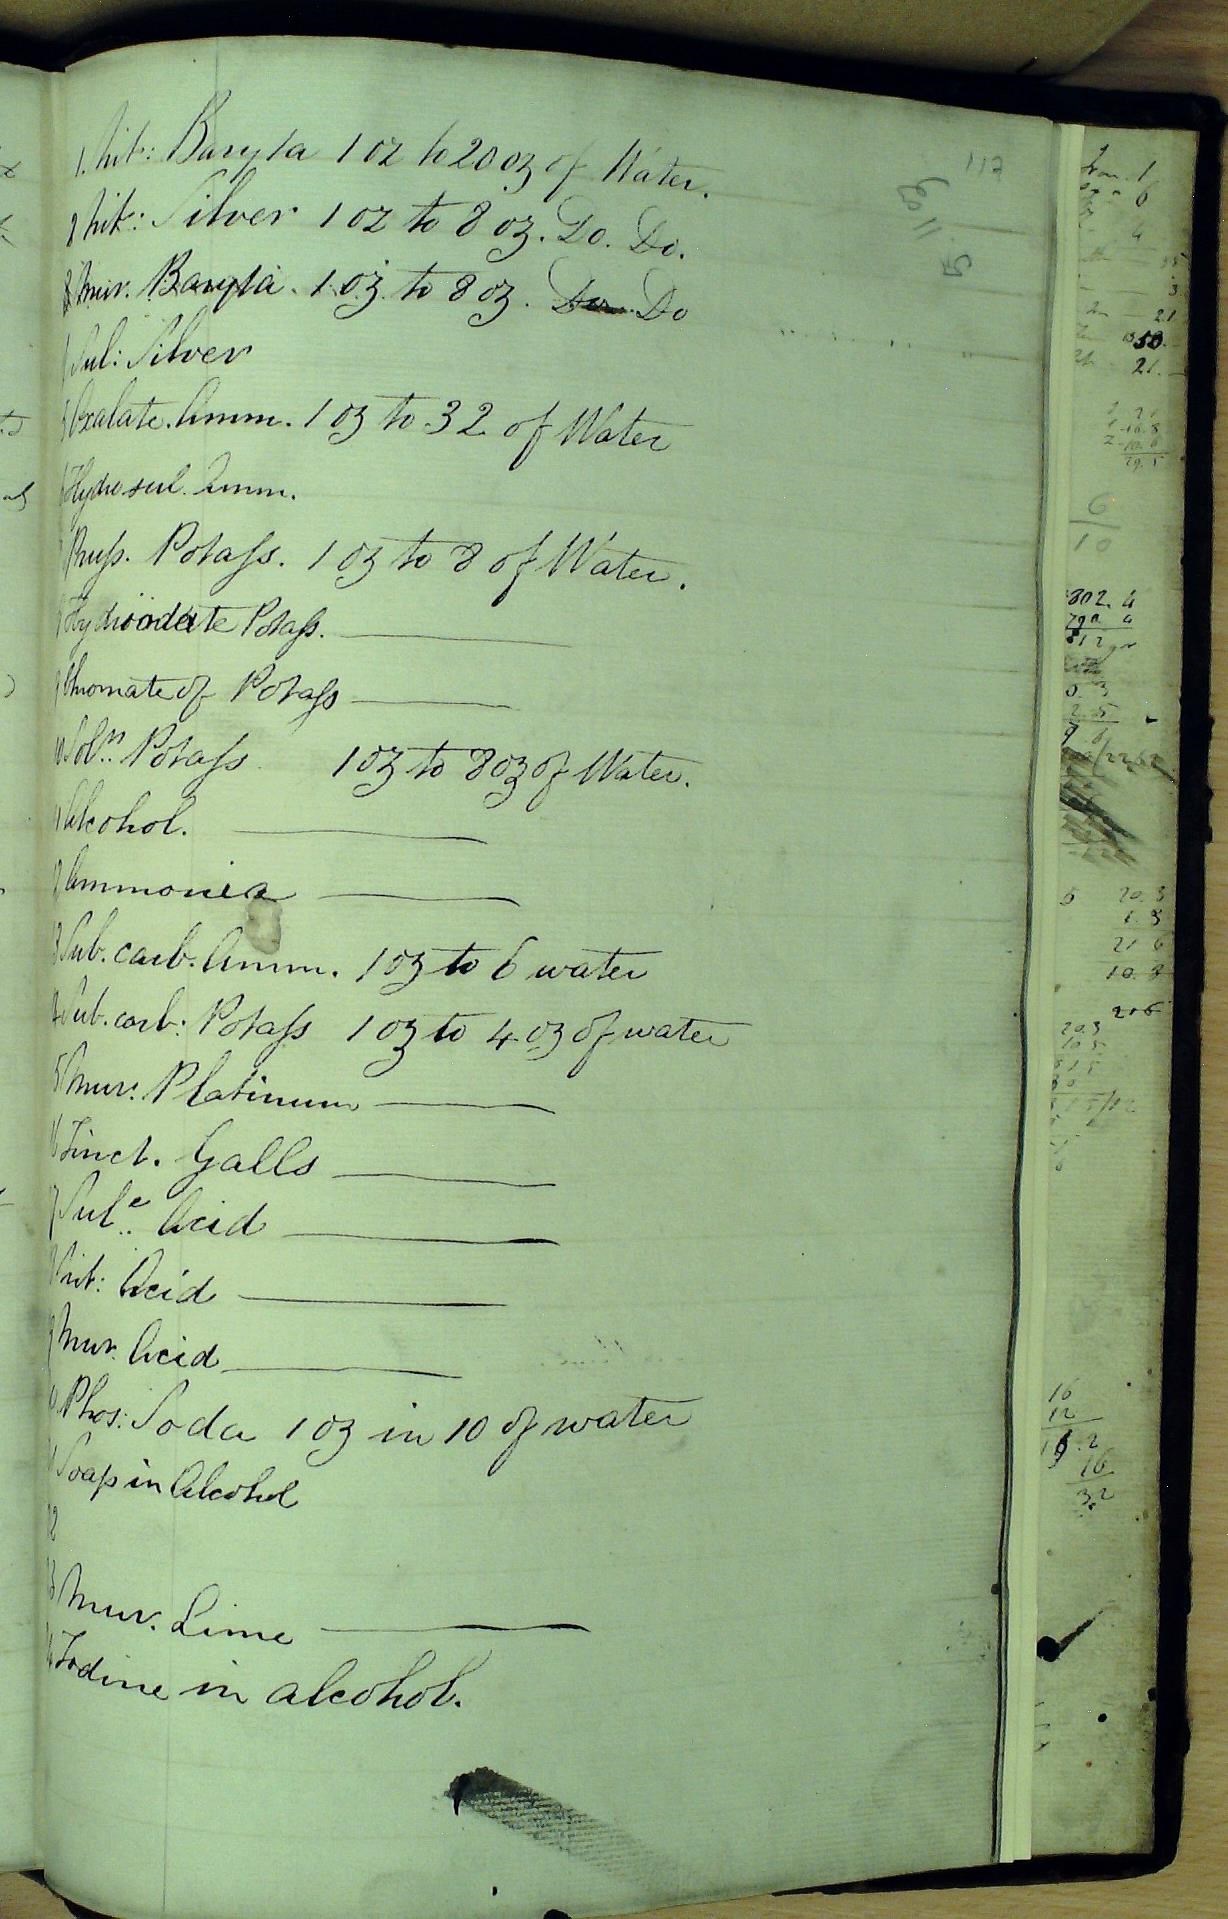 117
1. Nit: Baryta 1 oz to 20 oz of Water.
2 Nit: Silver 1 oz to 8 oz. Do. Do.
3 Mur. Baryta. 1 oz to 8 oz. Do
4 Sul: Silver
5 Oxalate. Amm. 1 oz to 32 of Water
6 Hydrosul. Amm.
7 Pruss. Potass. 1 oz to 8 of Water.
8 Hydriodate Potass.
9 Chromate of Potass
10 Soln. Potass 1 oz to 8 oz of Water.
11 Alcohol.
12 Ammonia
13 Sub. carb. Amm. 1 oz to 6 water
14 Sub. carb: Potass 1 oz to 4 oz of water
15 Mur: Platinum
16 Tinct. Galls
17 Sulc. Acid
18 Nit: Acid
19 Mur. Acid
20 Phos: Soda 1 oz in 10 of water
21 Soap in Alcohol
22
23 Mur. Lime
24 Iodine in alcohol.
1
6
4
3
21
50
21.
6
10
302. 4
20. 3
1. 3
21 6
10. 3
216
20.3
10 5
16
12
16
32